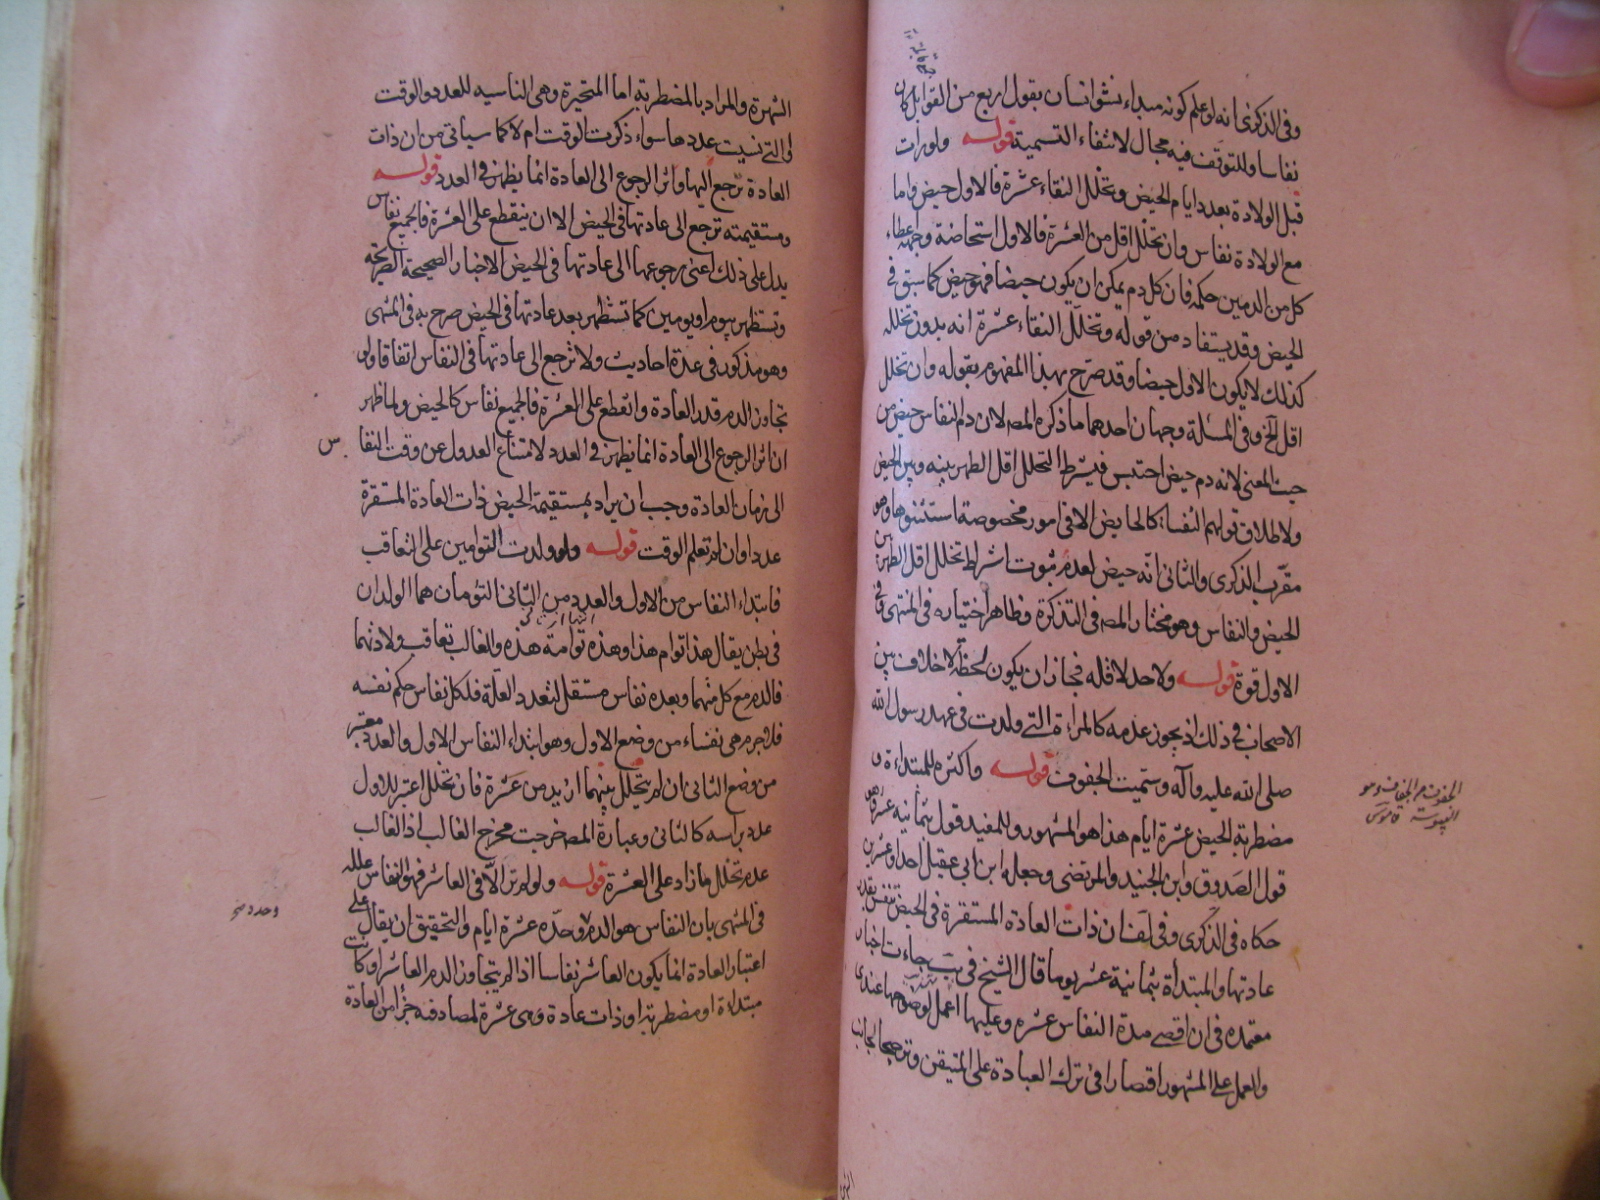 وفى الذكرى انه لو علم كونه مبداء نشو انسان بقول اربع من القوابل كان
نفاسا وللتوقف فيه مجال لانتفاء التسمية قوله ولو رات
قبل الولادة بعدد ايام الحيض وتخلل النقاء عشرة فالاول حيض وما
مع الولادة نفاس وان تخلل اقل من العشرة فالاول استحاضة وجهه اعطاء
كل من الدمين حكمه فان كل دم يمكن ان يكون حيضا فهو حيض كما سبق فى
الحيض وقد يستفاد من قوله وتخلل النقاء عشرة انه بدون تخلله
كذلك لا يكون الاول حيضا وقد صرح بهذا المفهوم بقوله وان تخلل
اقل الخ وفى المسئلة وجهان احدهما ما ذكره المصـ لان دم النفاس حيض من
حيث المعنى لانه دم حيض احتبس فيشترط التخلل اقل الطهر بينه وبين الحيض
ولاطلاق قولهم النفساء كالحايض الا فى امور مخصوصة استثنوها وهو
مقرب الذكرى والثانى انه حيض لعدم ثبوت اشتراط تخلل اقل الطهر بين
الحيض والنفاس وهو مختار المصـ فى التذكرة وظاهر اختياره فى المنتهى وفى
الاول قوة قوله ولا حد لاقله فجاز ان يكون لحظة لا خلاف بين
الاصحاب فى ذلك اذ يجوز عدمه كالمراءة التى ولدت فى عهد رسول الله
صلى الله عليه وآله وسميت الجفوف قوله واكثره للمبتداءة و
مضطربة الحيض عشرة ايام هذا هو المشهور وللمفيد قول بثمانية عشر وهو
قول الصدوق وابن الجنيد والمرتضى وجعله ابن ابى عقيل احدا وعشرين
حكاه فى الذكرى وفى لف ان ذات العادة المستقرة فى الحيض تتنفس بقدر
عادتها والمبتدأة بثمانية عشر يوما قال الشيخ فى يب جاءت اخبار
معتمدة فى ان اقصى مدة النفاس عشرة وعليها اعمل لوضوحها عندى
والعمل على المشهور اقتصارا فى ترك العبادة على المتيقن وترجيحا لجانب
الجفوف
القاموس
الشهرة والمراد بالمضطربة اما المتحيرة وهى الناسيه للعدد والوقت
او التى نسيت عددها سواء ذكرت الوقت ام لا كما سياتى من ان ذات
العادة ترجع اليها واثر الرجوع الى العادة انما يظهر فى العدد قوله
ومستقيمته ترجع الى عادتها فى الحيض الا ان ينقطع على العشرة فالجميع نفاس
يدل على ذلك اعنى رجوعها الى عادتها فى الحيض الاخبار الصحيحة الصريحة
وتستظهر بيوم او يومين كما تستظهر بعد عادتها فى الحيض صرح به فى المنتهى
وهو مذكور فى عدة احاديث ولا ترجع الى عادتها فى النفاس اتفاقا ولو
تجاوز الدم قدر العادة وانقطع على العشرة فالجميع نفاس كالحيض ولما ظهر
ان اثر الرجوع الى العادة انما يظهر فى العدد لامتناع العدول عن وقت النفاس
الى زمان العادة وجب ان يراد بمستقيمة الحيض ذات العادة المستقرة
عددا وان لم تعلم الوقت قوله ولو ولدت التوامين على التعاقب
فابتداء النفاس من الاول والعدد من الثانى التؤمان هما الولدان
فى بطن يقال هذا توام هذا وهذه توامة هذه والغالب تعاقب ولادتهما
فالدم مع كل منهما وبعده نفاس مستقل لتعدد العلة فلكل نفاس حكم نفسه
فلا جرم هى نفساء من وضع الاول وهو ابتداء النفاس الاول والعدد معتبر
من وضع الثانى ان لم يتخلل بينهما ازيد من عشرة فان تخلل اعتبر للاول
عدد براسه كالثانى وعبارة المصـ خرجت مخرج الغالب اذ الغالب
عدم تخلل ما زاد على العشرة قوله ولو لم تر الا فى العاشر فهو النفاس علله
فى المنتهى بان النفاس هو الدم وحده عشرة ايام والتحقيق ان يقال على
اعتبار العادة انما يكون العاشر نفاسا اذا لم يتجاوز الدم العاشر او كانت
مبتداة او مضطربة او ذات عادة وهى عشرة لمصادفته جزأ من العادة
وحده صح